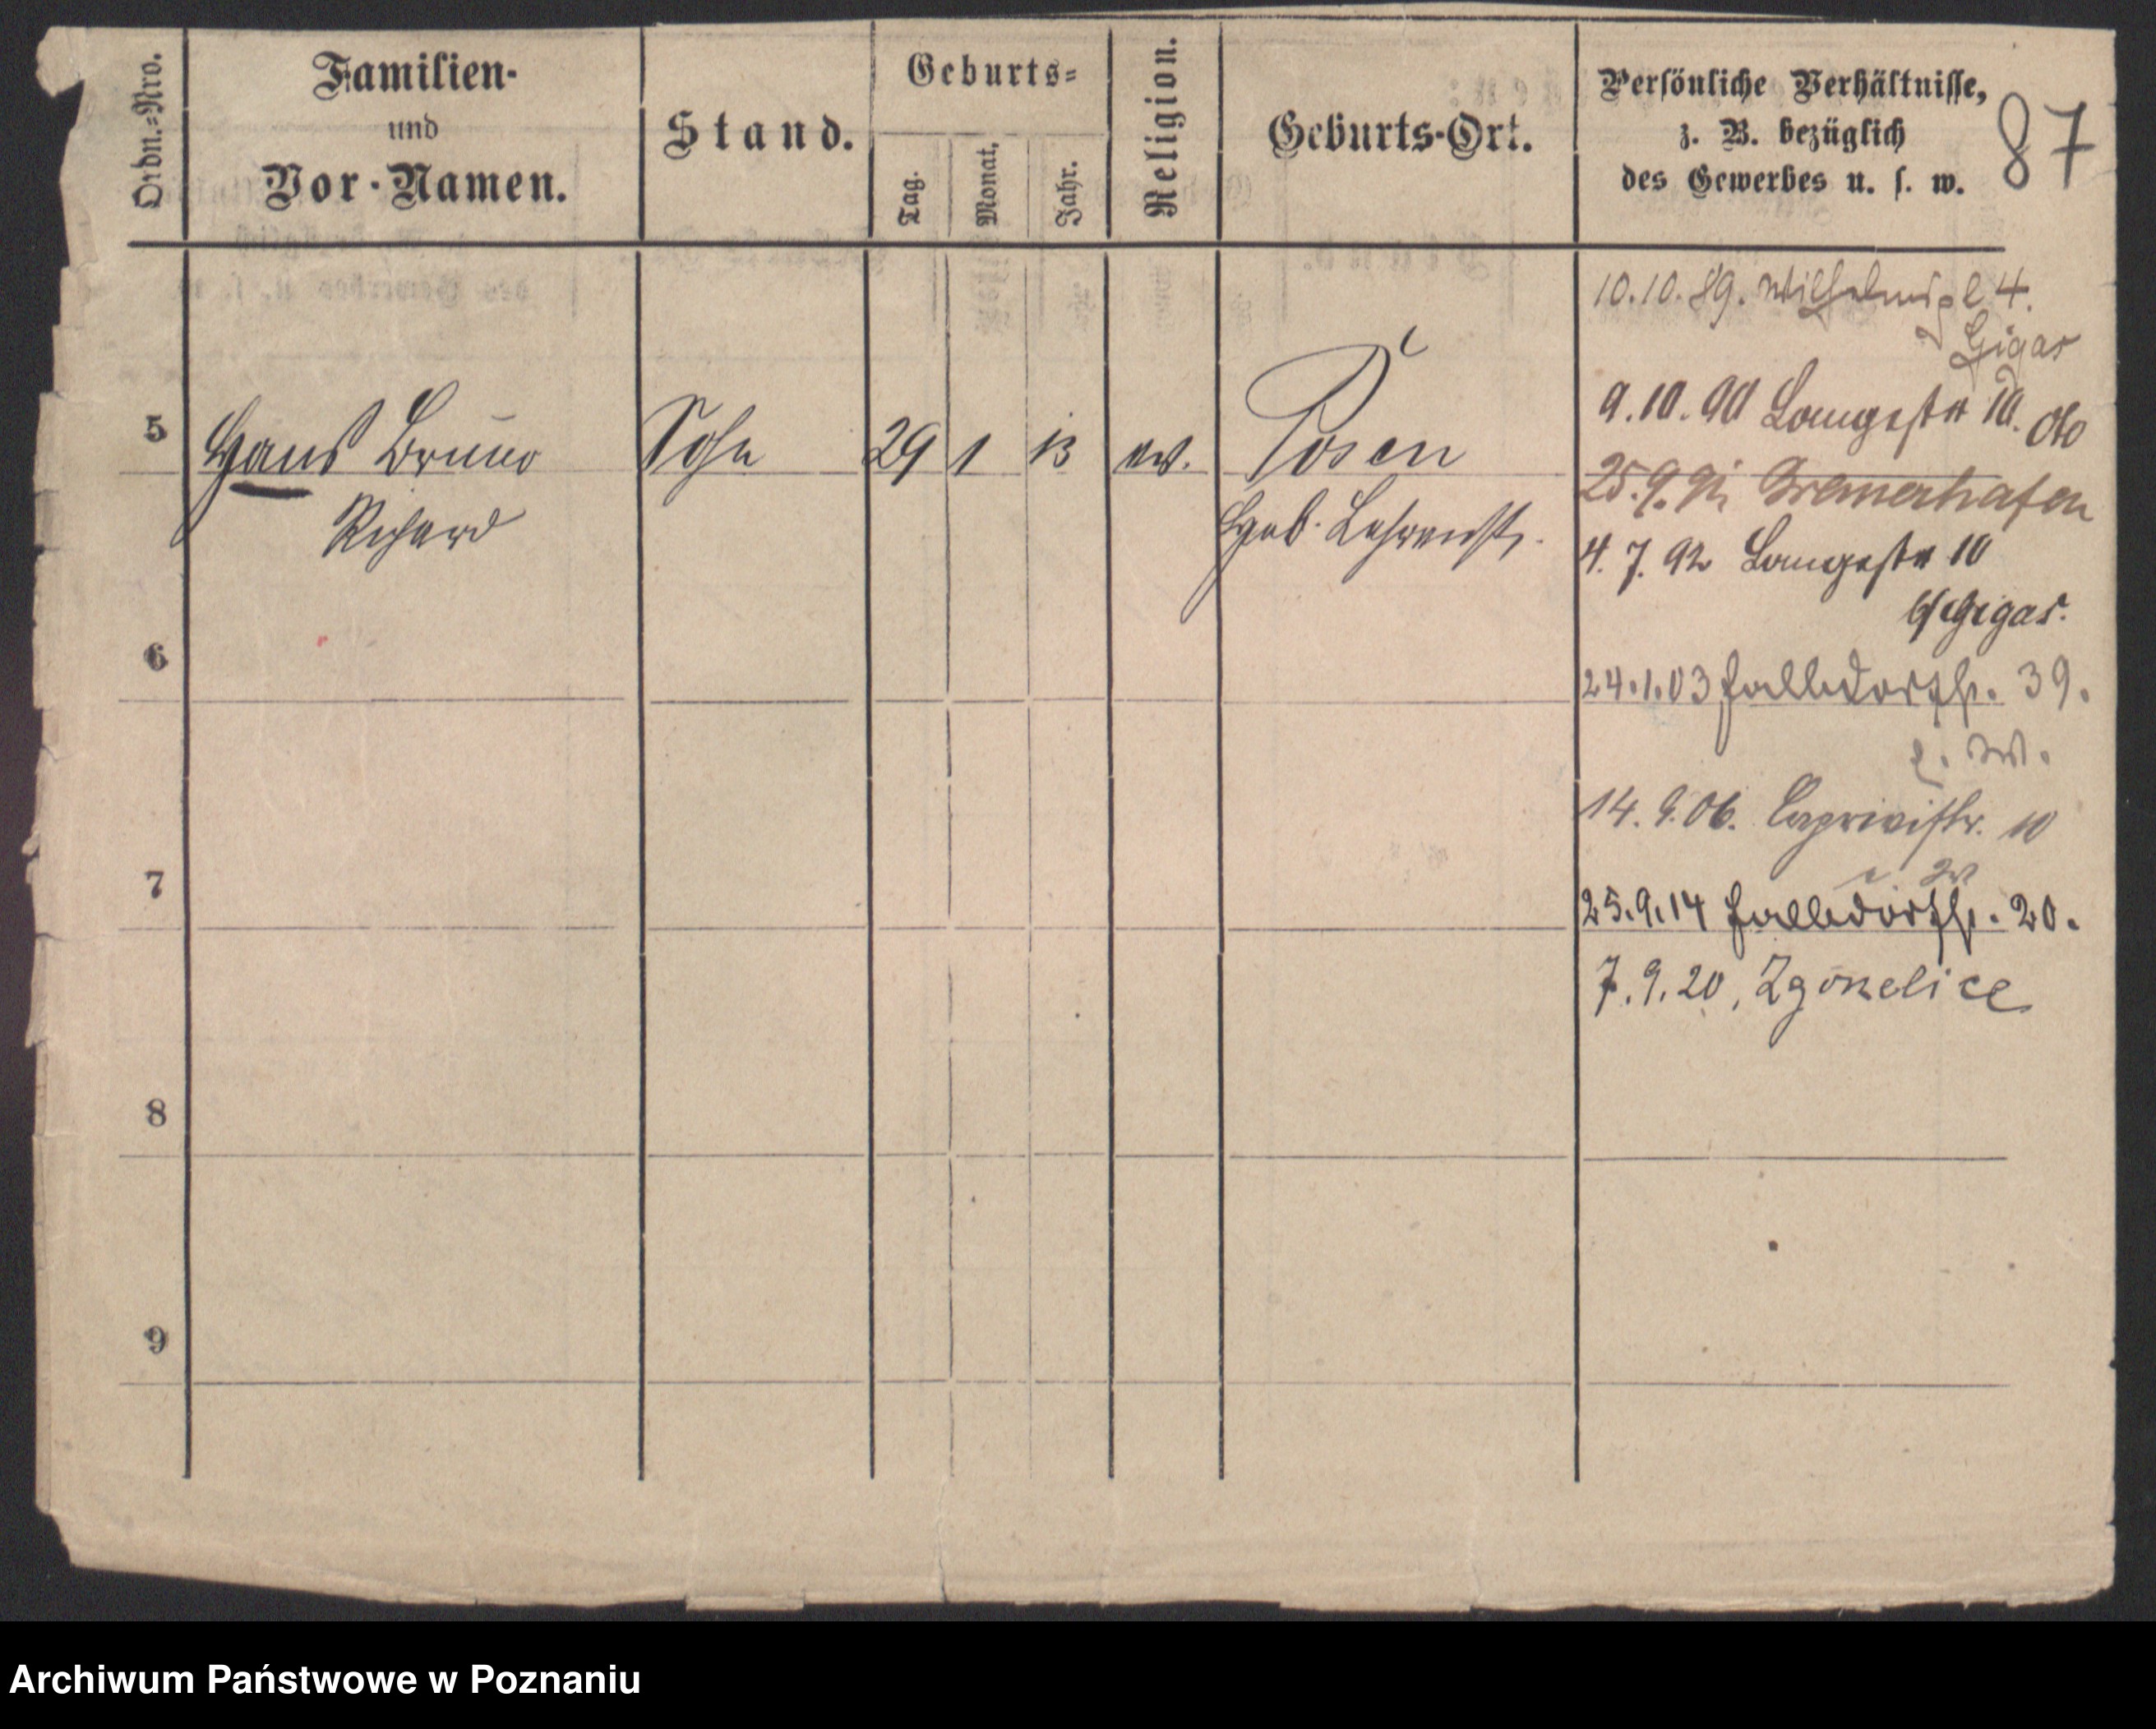 Ordn.-Nro.
Familien-
und
Vor-Namen.
Stand.
Geburts-
Tag.
Monat.
Jahr.
Religion.
Geburts-Ort.
Persönliche Verhältnisse,
z. B. bezüglich
des Gewerbes u. s. w.
87
10.10.89. Wilhelmspl 4.
Gigas
5 Hans Bruno Sohn 29 1 13 ev. Posen
Richard
9.10.90 Langestr 10.
Bremerhafen
4.7.92 Langestr 10
Gigas.
6
24.1.03 Halldorfstr. 39.
14.9.06. Caprivistr. 10
7
25.9.14 Halldorfstr. 20.
7.9.20,
8
9
Archiwum Państwowe w Poznaniu